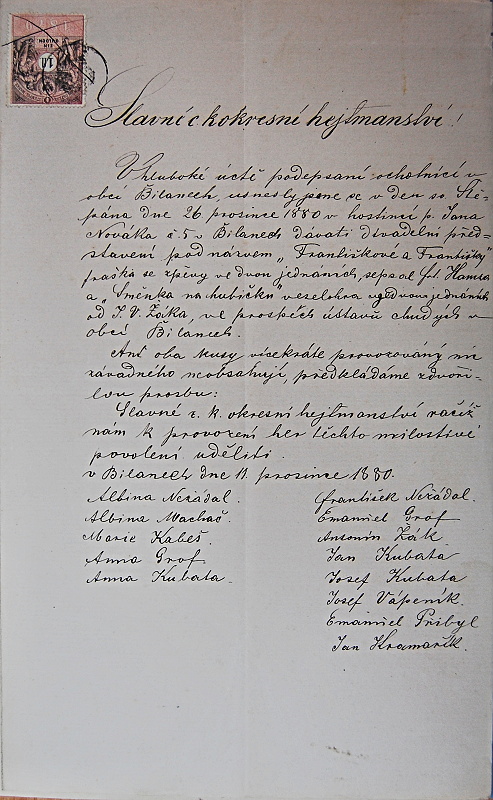 Slavné c. k. okresní hejtmanství!
V hluboké úctě podepsaní ochotníci v
obci Bílanech, usnesly jsme se v den sv. Ště-
pána dne 26. prosince 1880 v hostinci p. Jana
Nováka č. 5 v Bílanech dávati divadelní před-
stavení pod názvem „Františkové a Františky"
fraška se zpěvy ve dvou jednáních, sepsal Fr. Hamza
a „Směnka na hubičku" veselohra ve dvou jednáních
od J. V. Žáka, ve prospěch ústavu chudých v
obci Bílanech.
Ant oba kusy vícekráte provozovaný nic
závadného neobsahují, předkládáme zdvoři-
lou prosbu:
Slavné c. k. okresní hejtmanství račiž
nám k provození her těchto milostivé
povolení uděliti.
v Bílanech dne 11. prosince 1880.
Albina Neřádal.
Albina Machač.
Marie Kabeš.
Anna Grof
Anna Kubata.
František Neřádal.
Emaniel Grof
Antonín Žák.
Jan Kubata
Josef Kubata
Josef Vápeník.
Emaniel Přibyl
Jan Kramařík.